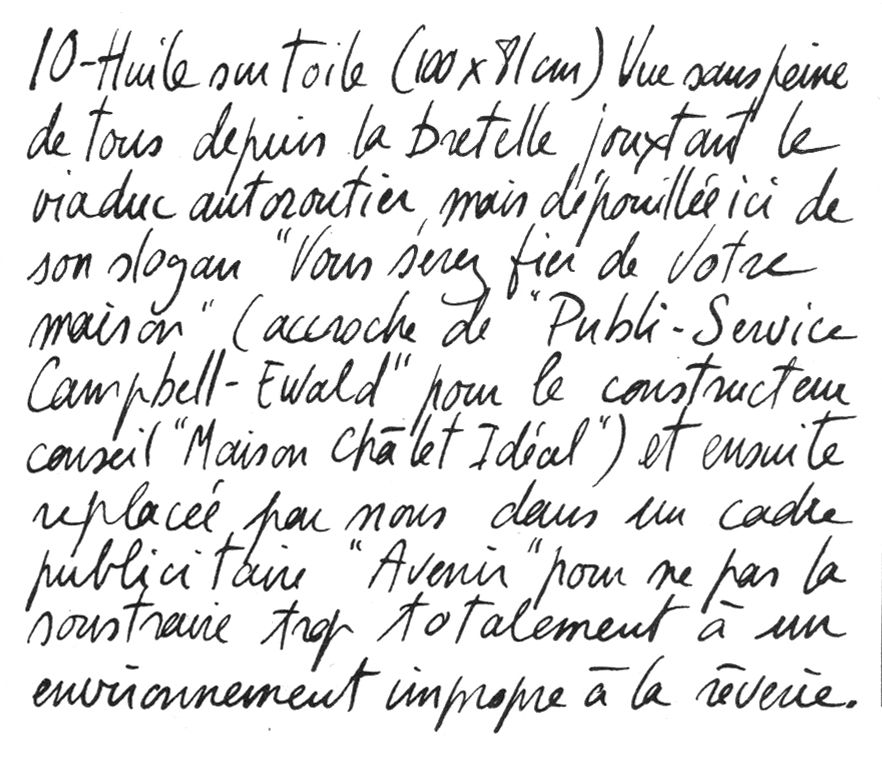 10-Huile sur toile (100 x 81 cm) Vue sans peine
de tous depuis la bretelle jouxtant le
viaduc autoroutier, mais dépouillée ici de
son slogan "Vous serez fier de votre
maison" (accroche de "Publi-Service
Campbell-Ewald" pour le constructeur
conseil "Maison Châlet Idéal") et ensuite
replacée par nous dans un cadre
publicitaire "Avenir" pour ne pas la
soustraire trop totalement à un
environnement impropre à la rêverie.